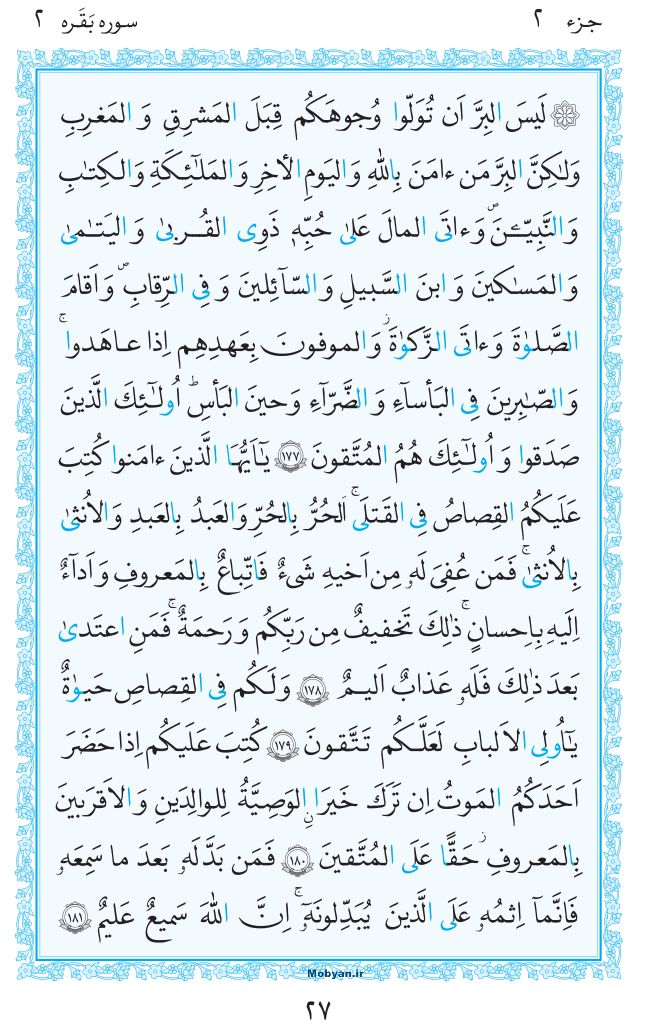 جزء ۲ سوره بَقَره ۲
لَيسَ البِرَّ اَن تُوَلّوا وُجوهَكُم قِبَلَ المَشرِقِ وَ المَغرِبِ
وَلٰكِنَّ البِرَّ مَن ءامَنَ بِاللهِ وَ اليَومِ الأخِرِ وَ المَلٰٓئِكَةِ وَ الكِتٰبِ
وَ النَّبِيّـۧنَۖ وَ ءاتَى المالَ عَلىٰ حُبِّه۪ ذَوِى القُربىٰ وَ اليَتٰمىٰ
وَ المَسٰكينَ وَ ابنَ السَّبيلِ وَ السّآئِلينَ وَ فِى الرِّقابِۖ وَ اَقامَ
الصَّلوٰةَ وَ ءاتَى الزَّكوٰةَ وَ الموفونَ بِعَهدِهِم اِذا عاهَدواۚ
وَ الصّٰبِرينَ فِى البَأسآءِ وَ الضَّرّآءِ وَ حينَ البَأسِؕ اُولٰٓئِكَ الَّذينَ
صَدَقوا وَ اُولٰٓئِكَ هُمُ المُتَّقونَ ۱۷۷ يٰٓاَيُّهَا الَّذينَ ءامَنوا كُتِبَ
عَلَيكُمُ القِصاصُ فِى القَتلَىۚ اَلحُرُّ بِالحُرِّ وَ العَبدُ بِالعَبدِ وَ الاُنثىٰ
بِالاُنثىٰۚ فَمَن عُفِىَ لَه۫ مِن اَخيهِ شَىءٌ فَاتِّباعٌ بِالمَعروفِ وَ اَدآءٌ
اِلَيهِ بِاِحسانٍۚ ذٰلِكَ تَخفيفٌ مِن رَبِّكُم وَ رَحمَةٌۚ فَمَنِ اعتَدىٰ
بَعدَ ذٰلِكَ فَلَه۫ عَذابٌ اَليمٌ ۱۷۸ وَ لَكُم فِى القِصاصِ حَيوٰةٌ
يٰٓاُولِى الاَلبابِ لَعَلَّكُم تَتَّقونَ ۱۷۹ كُتِبَ عَلَيكُم اِذا حَضَرَ
اَحَدَكُمُ المَوتُ اِن تَرَكَ خَيرَاۨ الوَصِيَّةُ لِلوالِدَينِ وَ الاَقرَبينَ
بِالمَعروفِ حَقًّا عَلَى المُتَّقينَ ۱۸۰ فَمَن بَدَّلَه۫ بَعدَ ما سَمِعَه۫
فَاِنَّمآ اِثمُه۫ عَلَى الَّذينَ يُبَدِّلونَه۫ٓۚ اِنَّ اللهَ سَميعٌ عَليمٌ ۱۸۱
Mobyan.ir
۲۷